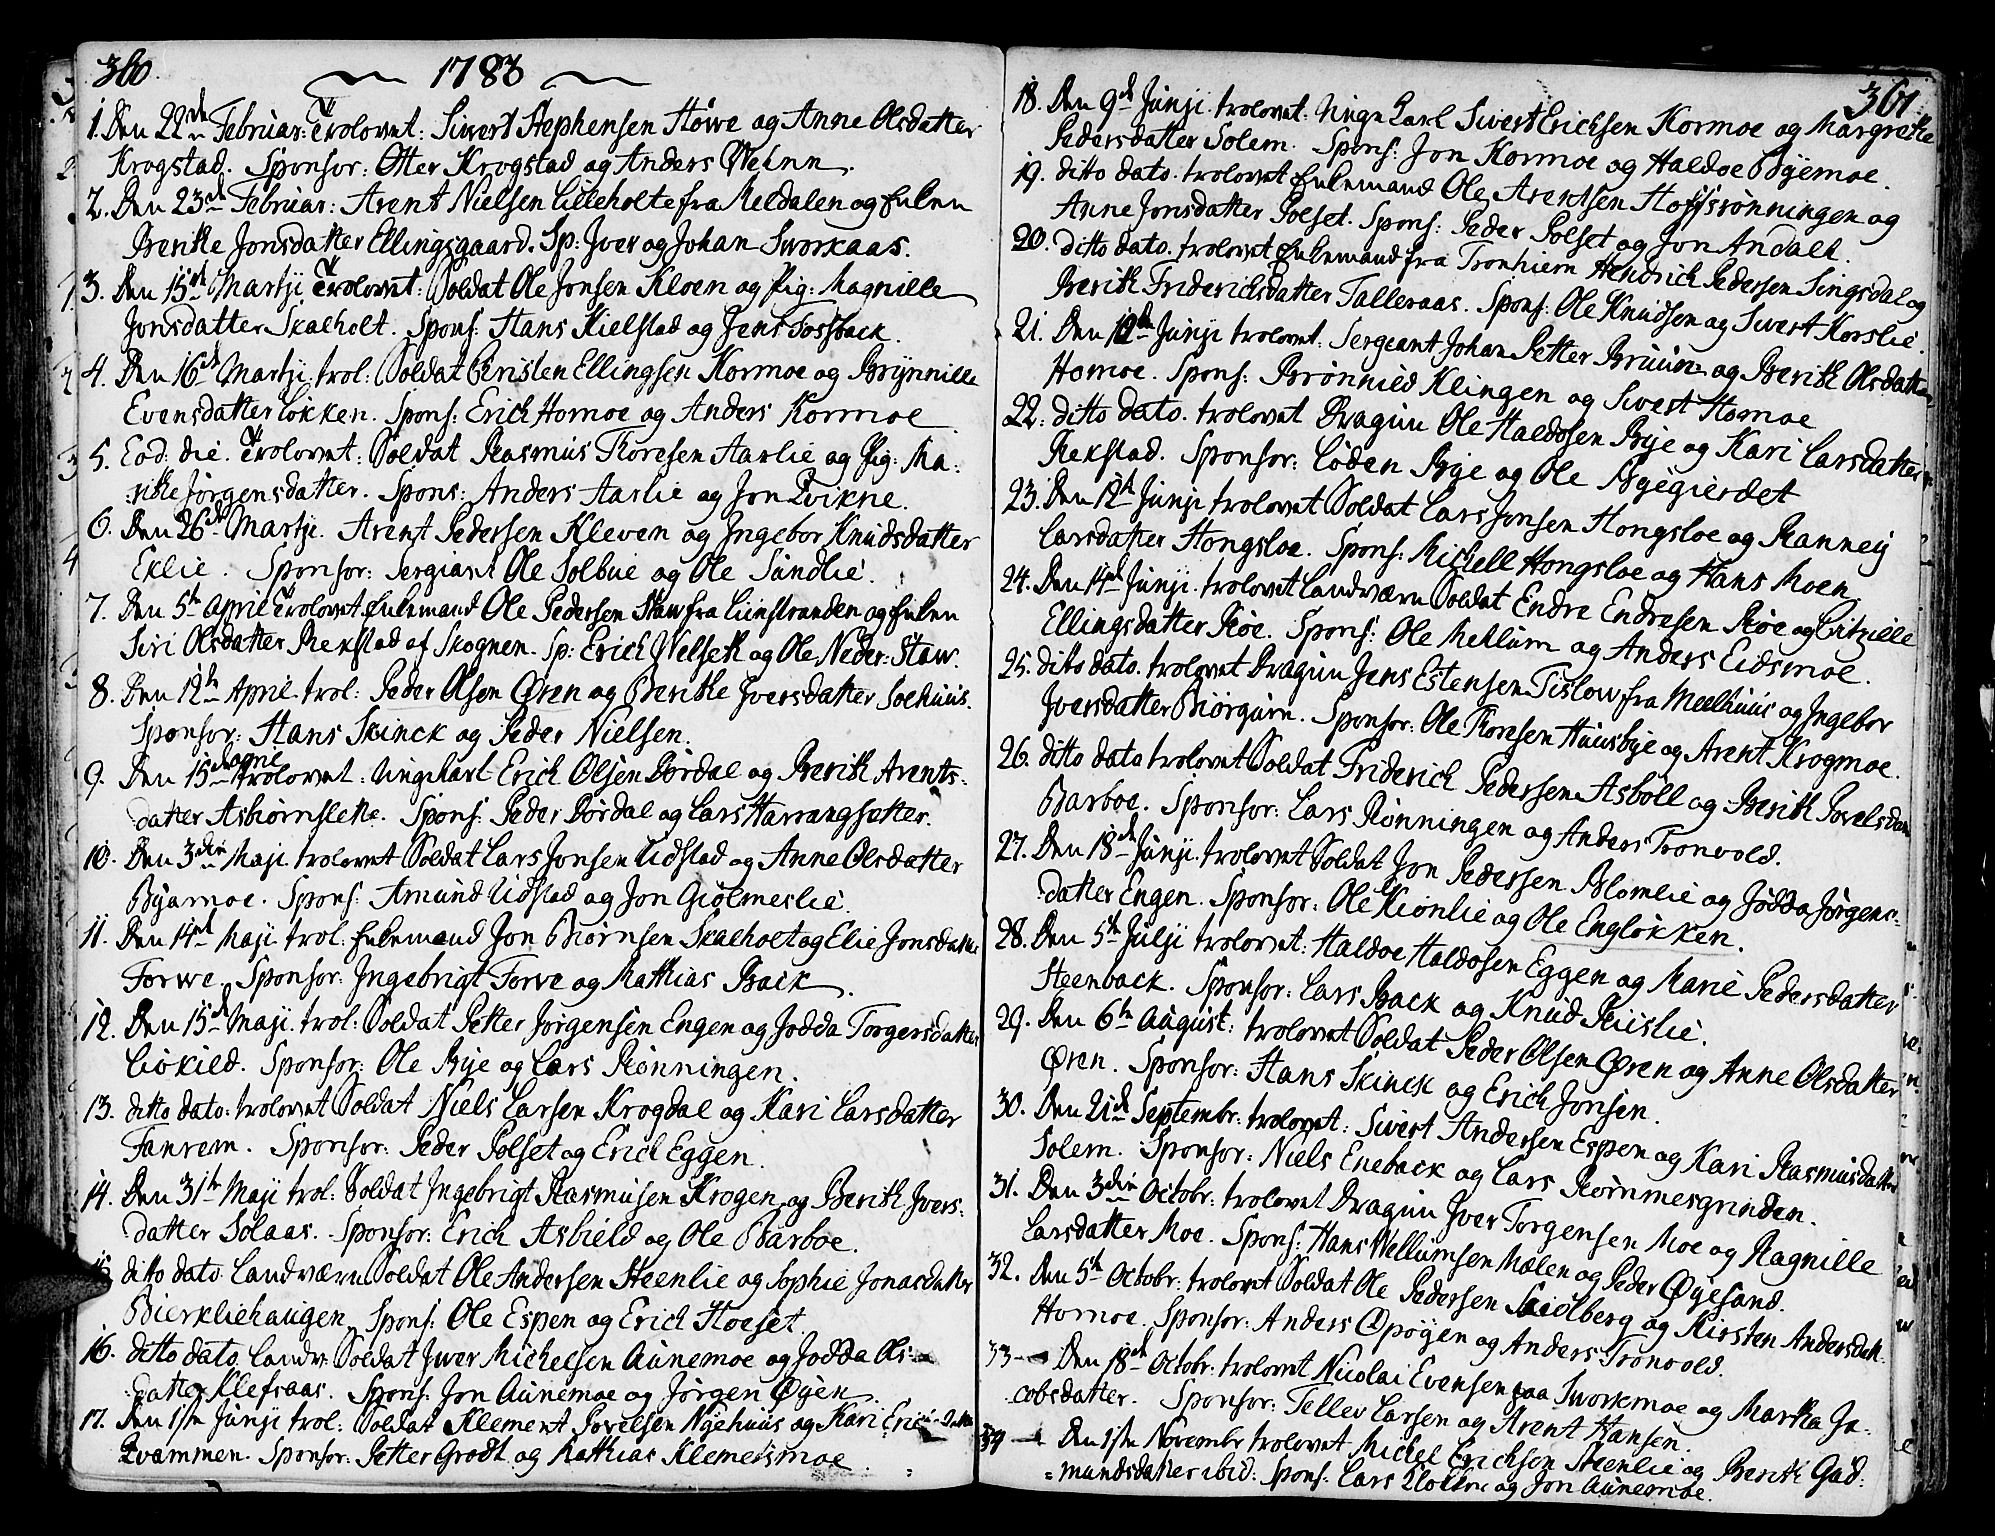 360.
1788
1. Den 22de Februar: Trolovet: Siwert Stephensen Höwe og Anne Olsdatter
Krogstad. Sponsor: Otter Krogstad og Anders Wehnn.
2. Den 23de Februar: Arent Nielsen Lilleholte fra Meldalen og Enken
Berithe Jonsdatter Ellingsgaard. Sp: Iver og Johan Sworkaas.
3. Den 15de Martji Trolovet: Soldat Ole Jonsen Kloen og Pig: Magnille
Jonsdatter Skalholt. Spons: Hans Kielstad og Jens Fossback.
4. Den 16de Martji trol: Soldat Christen Ellingsen Kormoe og Brynnille
Evensdatter Løkken. Spons: Erich Homoe og Anders Kormoe
5. Eod: die. Trolovet: Soldat Rasmus Thoresen Aarlie og Pig: Ma:
rithe Jörgensdatter. Spons: Anders Aarlie og Jon Qvikne.
6. Den 26de Martji. Arent Pedersen Kleven og Ingebor Knudsdatter
Eklie. Sponsor: Sergiant Ole Solbue og Ole Sundlie.
7. Den 5te April Trolovet Enkemand Ole Pedersen Staw fra Einstranden og Enken
Siri Olsdatter Rekstad af Skognen. Sp: Erich Welseth og Ole Neder: Staw.
8. Den 12th April trol: Peder Olsen Øren og Berithe Iversdatter Solhuus.
Sponsor: Hans Skinck og Peder Nielsen.
9. Den 15de April trolovet: Ungekarl Erich Olsen Dørdal og Berith Arents:
datter Asbiørnslette. Spons: Peder Dørdal og Lars Harrangsetter.
10. Den 3die Maji trolovet Soldat Lars Jonsen Lidstad og Anne Olsdatter
Byamoe. Spons: Amund Lidstad og Jon Giølmeslie.
11. Den 14de Maji trol: Enkemand Jon Biørnsen Skalholt og Elie Jonsdatter
Forwe. Sponsor: Ingebrigt Forve og Mathias Back.
12. Den 15de Maji. trol: Soldat Petter Jørgensen Engen og Jodda Torgersdatter
Liøkield. Sponsor: Ole Bye og Lars Rønningen.
13. ditto dato: trolovet Soldat Niels Larsen Krogdal og Kari Larsdatter
Fanrem. Sponsor: Peder Solset og Erich Eggen.
14. Den 31th Maji trol: Soldat Ingebrigt Rasmusen Krogen og Berith Ivers:
datter Solaas. Sponsor: Erich Asbield og Ole Barboe.
15 ditto dato. Landværn Soldat Ole Andersen Steenlie og Sophie Jonasdatter
Bierkliehaugen. Spons: Ole Espen og Erich Hoeset
16. ditto dato. Landv: Soldat Iwer Michelsen Aunemoe og Jodda Ols:
datter Klefsaas. Spons: Jon Aunemoe og Jørgen Øyen.
17. Den 1ste Junji trol: Soldat Klement Povelsen Nyehuus og Kari Erichsdatter
Qvammen. Sponsor: Petter Grodt og Mathias Klemetsmoe.
361
18. Den 9de Junji. trolovet: Ungk Carl Siwert Erichsen Kormoe og Margrethe
Pedersdatter Solem. Spons: Jon Kormoe og Haldoe Byemoe.
19. ditto dato. trolovet Enkemand Ole Arentsen Hoffsrønningen og
Anne Jonsdatter Solset. Spons: Peder Solset og Jon Andalt.
20. ditto dato. trolovet Enkemand fra Tronhiem Hendrich Pedersen Singsdal og
Berith Friderichsdatter Talleraas. Spons: Ole Knudsen og Siwert Korslie.
21. Den 12de Junji trolovet: Sergeant Johan Petter Bruun og Berith Olsdatter
Homoe. Spons: Brønnild Klingen og Siwert Homoe
22. ditto dato. trolovet Dragun Ole Haldosen Bye og Kari Larsdatter
Rekstad. Sponsor: Loden Bye og Ole Byegierdet
23. Den 12th Junji trolovet Soldat Lars Jonsen Hongsloe og Ranney
Larsdatter Hongsloe. Spons: Michell Hongsloe og Hans Moen.
24. Den 14de Junji. trolovet Landværn Soldat Endre Endresen Røe og Citzille
Ellingsdatter Røe. Spons: Ole Mehlum og Anders Eidsmoe.
25. ditto dato. trolovet Dragun Jens Estensen Tislow fra Meelhuus og Ingebor
Iversdatter Biørgum. Sponsor: Ole Thoresen Huusbye og Arent Krogmoe.
26. ditto dato trolovet Soldat Friderich Pedersen Asbøll og Berith Povelsdatter
Barboe. Sponsor: Lars Rønningen og Anders Tronvold.
27. Den 18de Junji. trolovet Soldat Jon Pedersen Blomlie og Jodda Jørgens:
datter Engen. Sponsor: Ole Kiønlie og Ole Engløkken.
28. Den 5th Julji trolovet: Haldoe Haldosen Eggen og Marie Pedersdatter
Steenback. Sponsor: Lars Back og Knud Riislie.
29. Den 6te August: trolovet Soldat Peder Olsen Øren og Anne Olsdatter
Øren. Sponsor: Hans Skinck og Erich Jonsen.
30. Den 21de Septembr: trolovet: Siwert Andersen Espen og Kari Rasmusdatter
Solem. Sponsor: Niels Eneback og Lars Rømmesgrinden.
31. Den 3die Octobr: trolovet Dragun Iver Torgensen Moe og Ragnille
Larsdatter Moe. Spons: Hans Wellumsen Mælen og Peder Øyesand.
32. Den 5th Octobr: trolovet Soldat Ole Pedersen Skiølberg og Kirsten Andersdatt:
Homoe. Sponsor: Anders Opøyen og Anders Tronvold.
33 - Den 18de Octobr: trolovet Nicolai Evensen paa Sworkmoe og Martha Ja:
cobsdatter. Sponsor: Tellev Larsen og Arent Hansen.
34 - Den 1ste Novembr trolovet Michel Erichsen Steenlie og Berith Gud:
mundsdatter ibid: Spons: Lars Klokker og Jon Aunemoe.